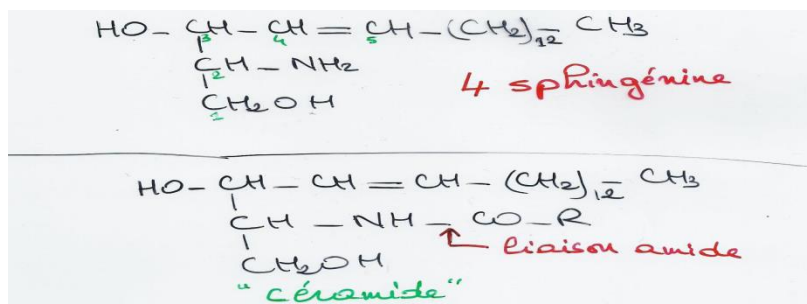 HO – CH – CH = CH – (CH2)12 – CH3
3 4 5
CH – NH2
2
4 sphingénine
CH2OH
1
HO – CH – CH = CH – (CH2)12 – CH3
CH – NH – CO – R
liaison amide
CH2OH
"céramide"